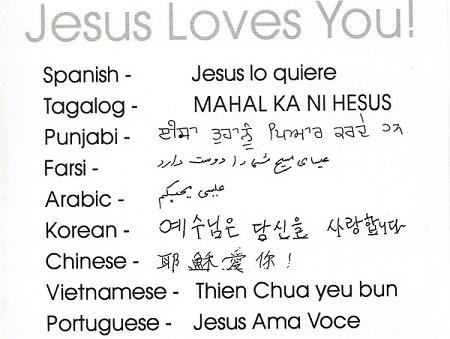 Jesus Loves You!
Spanish - Jesus lo quiere
Tagalog - MAHAL KA NI HESUS
Punjabi - ਈਸਾ ਤੁਹਾਨੂੰ ਪਿਆਰ ਕਰਦੇ ਹਨ
Farsi - عیسای مسیح شما را دوست دارد
Arabic - عيسى يحبكم
Korean - 예수님은 당신을 사랑합니다
Chinese - 耶穌愛你!
Vietnamese - Thien Chua yeu bun
Portuguese - Jesus Ama Voce